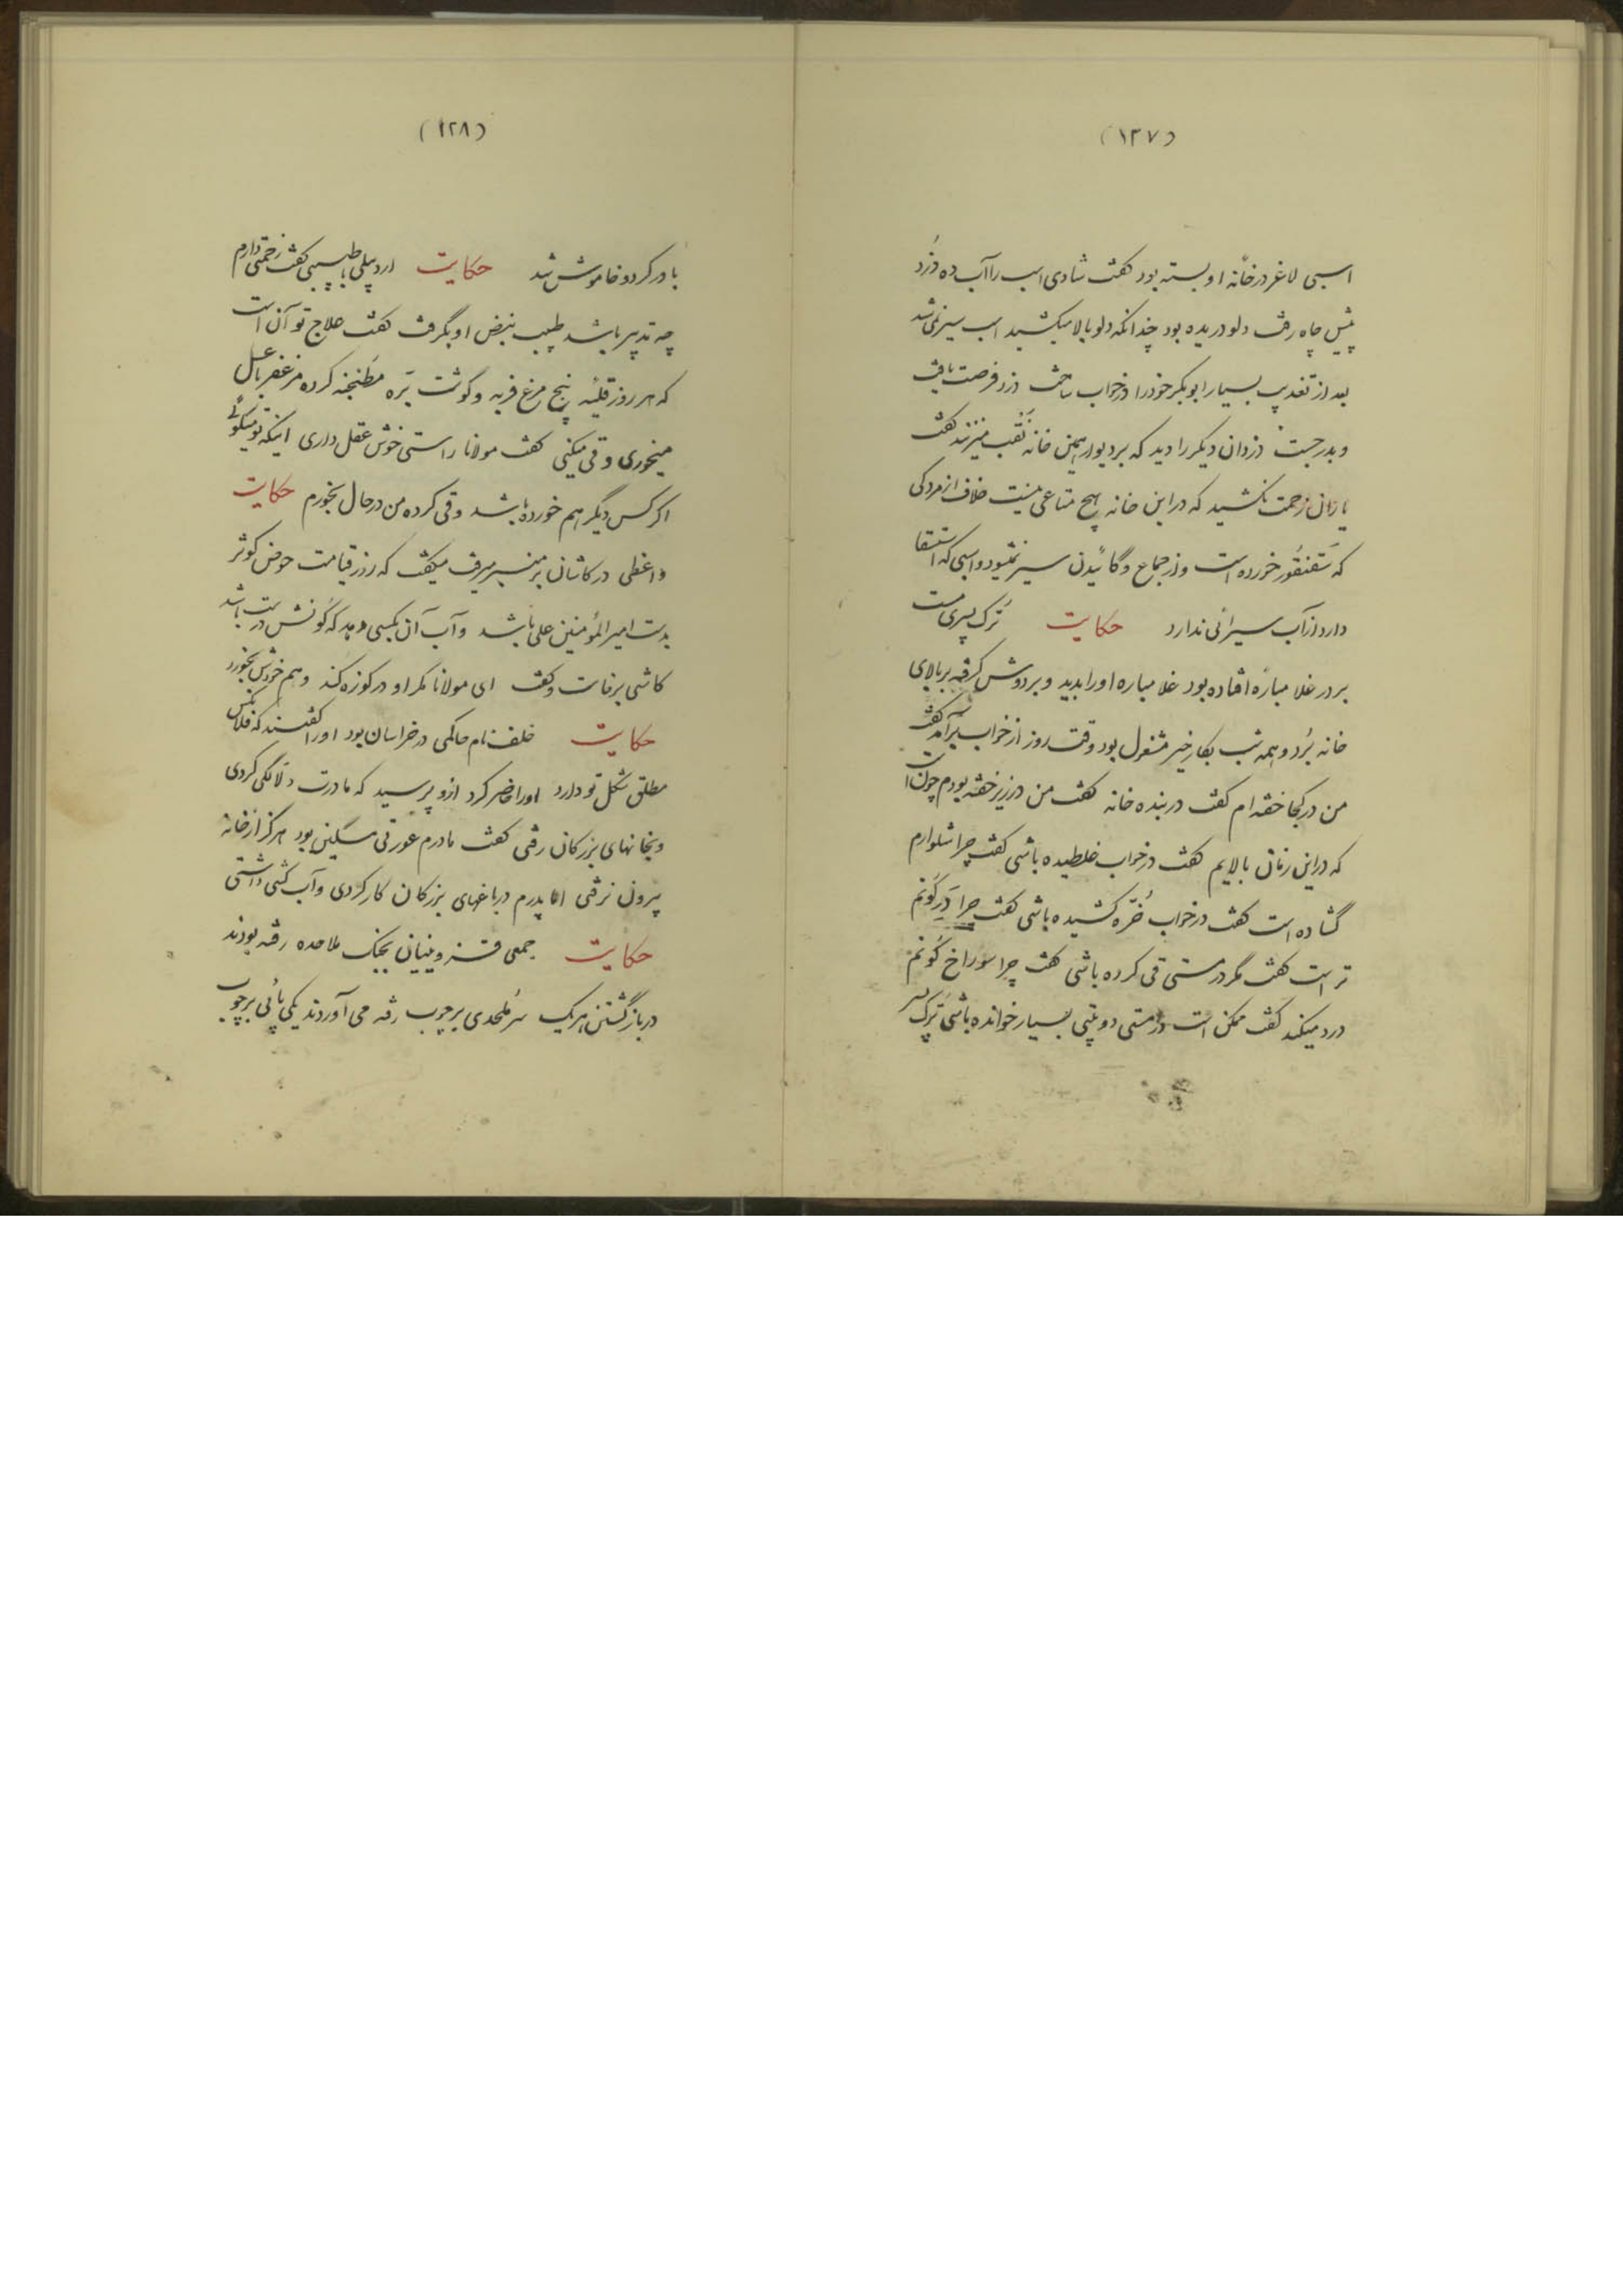 (۱۲۷)
اسبی لاغر در خانه او بسته بود گفت شادی اسب را آب ده دزد
پیش چاه رفت دلو دریده بود چندانکه دلو بالا میکشید اسب سیر نمی شد
بعد از تعذیب بسیار ابوبکر خود را در خواب ساخت دزد فرصت یافت
و بدر جست دزدان دیگر را دید که بر دیوار همین خانه نقب میزنند گفت
یاران زحمت نکشید که در این خانه هیچ متاعی نیست خلاف از مردکی
که سقنقور خورده است و از جماع و گائیدن سیر نمیشود و اسبی که استسقا
دارد از آب سیرائی ندارد حکایت ترک پسری مست
بر در غلامباره افتاده بود غلامباره او را بدید و بر دوش گرفته بر بالای
خانه برد و همه شب بکار خیر مشغول بود وقت روز از خواب برآمد گفت
من در کجا خفته ام گفت در بنده خانه گفت من در زیر خفته بودم چون است
که در این زمان بالایم گفت در خواب غلطیده باشی گفت چرا شلوارم
گشاده است گفت در خواب خره کشیده باشی گفت چرا در کونم
تر است گفت مگر در مستی قی کرده باشی گفت چرا سوراخ کونم
درد میکند گفت ممکن است در مستی دوبیتی بسیار خوانده باشی ترک پسر
(۱۲۸)
باور کرد و خاموش شد حکایت اردبیلی با طبیبی گفت زحمتی دارم
چه تدبیر باشد طبیب نبض او بگرفت گفت علاج تو آن است
که هر روز قلیه پنج مرغ فربه و گوشت بره مطنجنه کرده مزعفر با عسل
میخوری و قی میکنی گفت مولانا راستی خوش عقل داری اینکه تو میگوئی
اگر کس دیگر هم خورده باشد و قی کرده من در حال بخورم حکایت
واعظی در کاشان بر منبر میرفت میگفت که روز قیامت حوض کوثر
بدست امیرالمؤمنین علی باشد و آب آن بکسی دهد که کونش درست باشد
کاشی برخاست و گفت ای مولانا مگر او در کوزه کند و هم خودش بخورد
حکایت خلف نام حاکمی در خراسان بود او را گفتند که فلانکس
مطلق شکل تو دارد او را حاضر کرد ازو پرسید که مادرت دلالگی کردی
و بخانهای بزرگان رفتی گفت مادرم عورتی مسکین بود هرگز از خانه
بیرون نرفتی اما پدرم در باغهای بزرگان کار کردی و آب کشی داشتی
حکایت جمعی قزوینیان بجنگ ملاحده رفته بودند
در بازگشتن هریک سر ملحدی بر چوب رفته می آوردند یکی پائی بر چوب